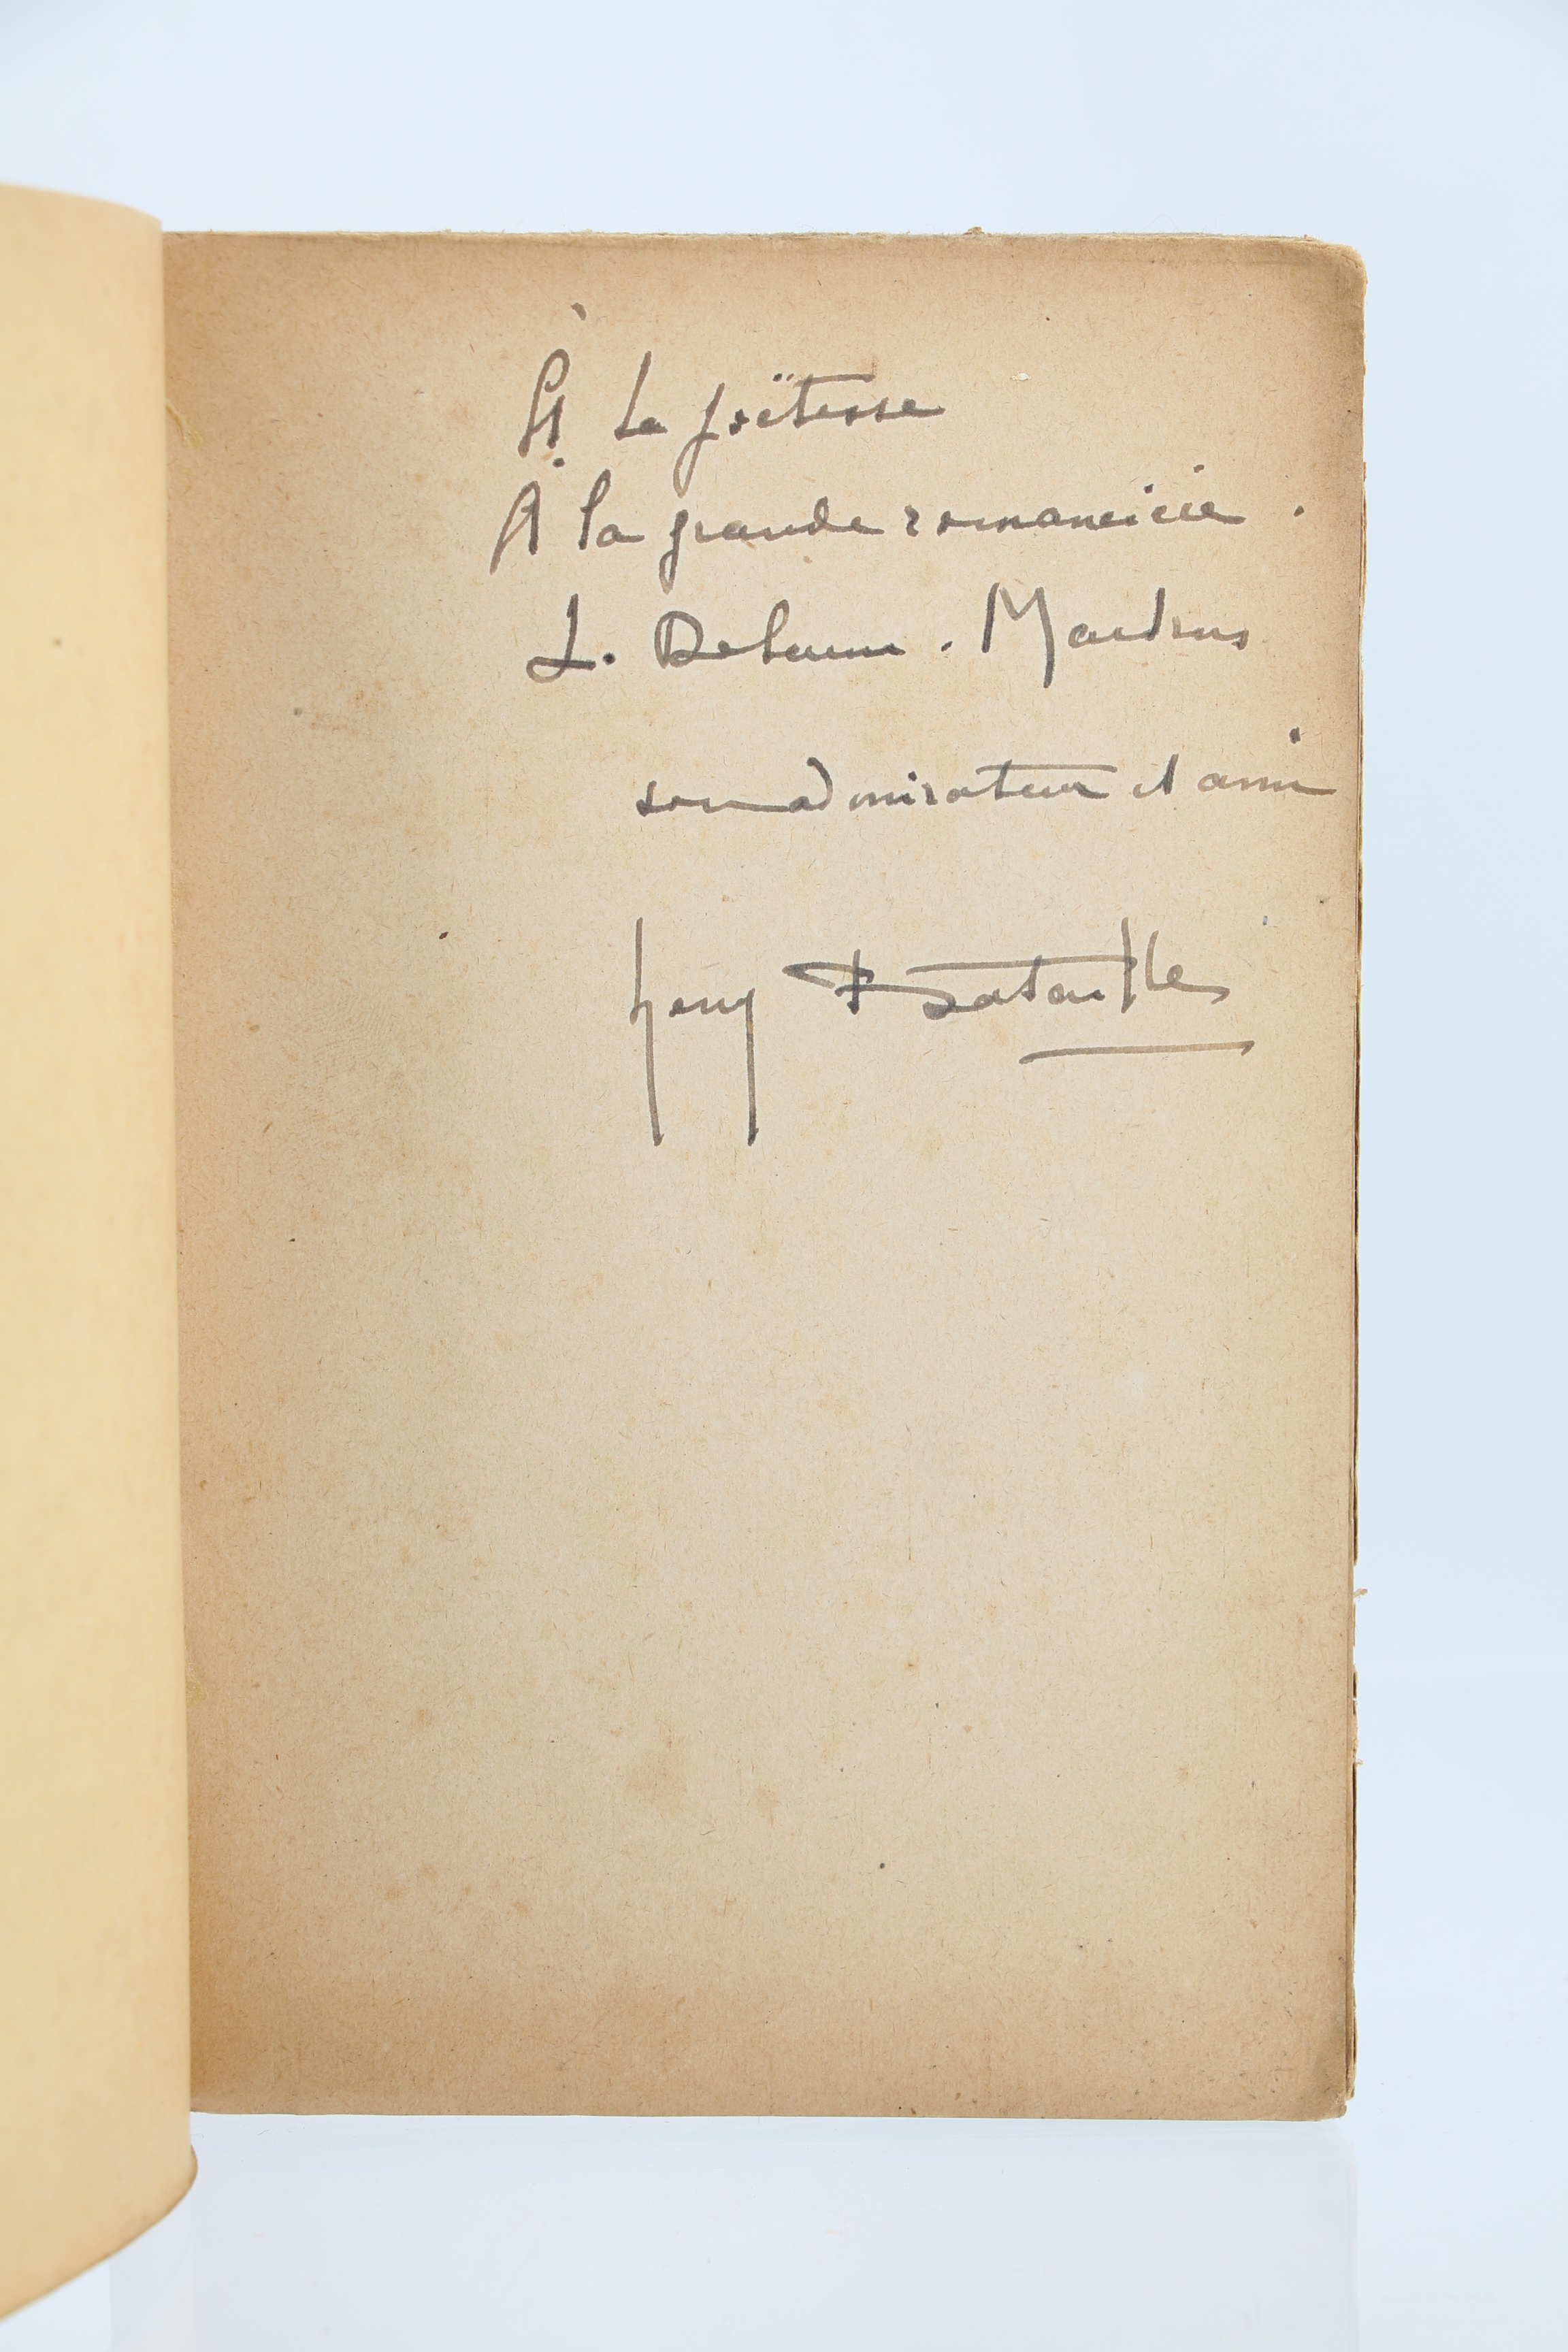 À La poëtesse
À la grande romancière.
L. Delarue. Mardrus
son admirateur et ami
henry Bataille